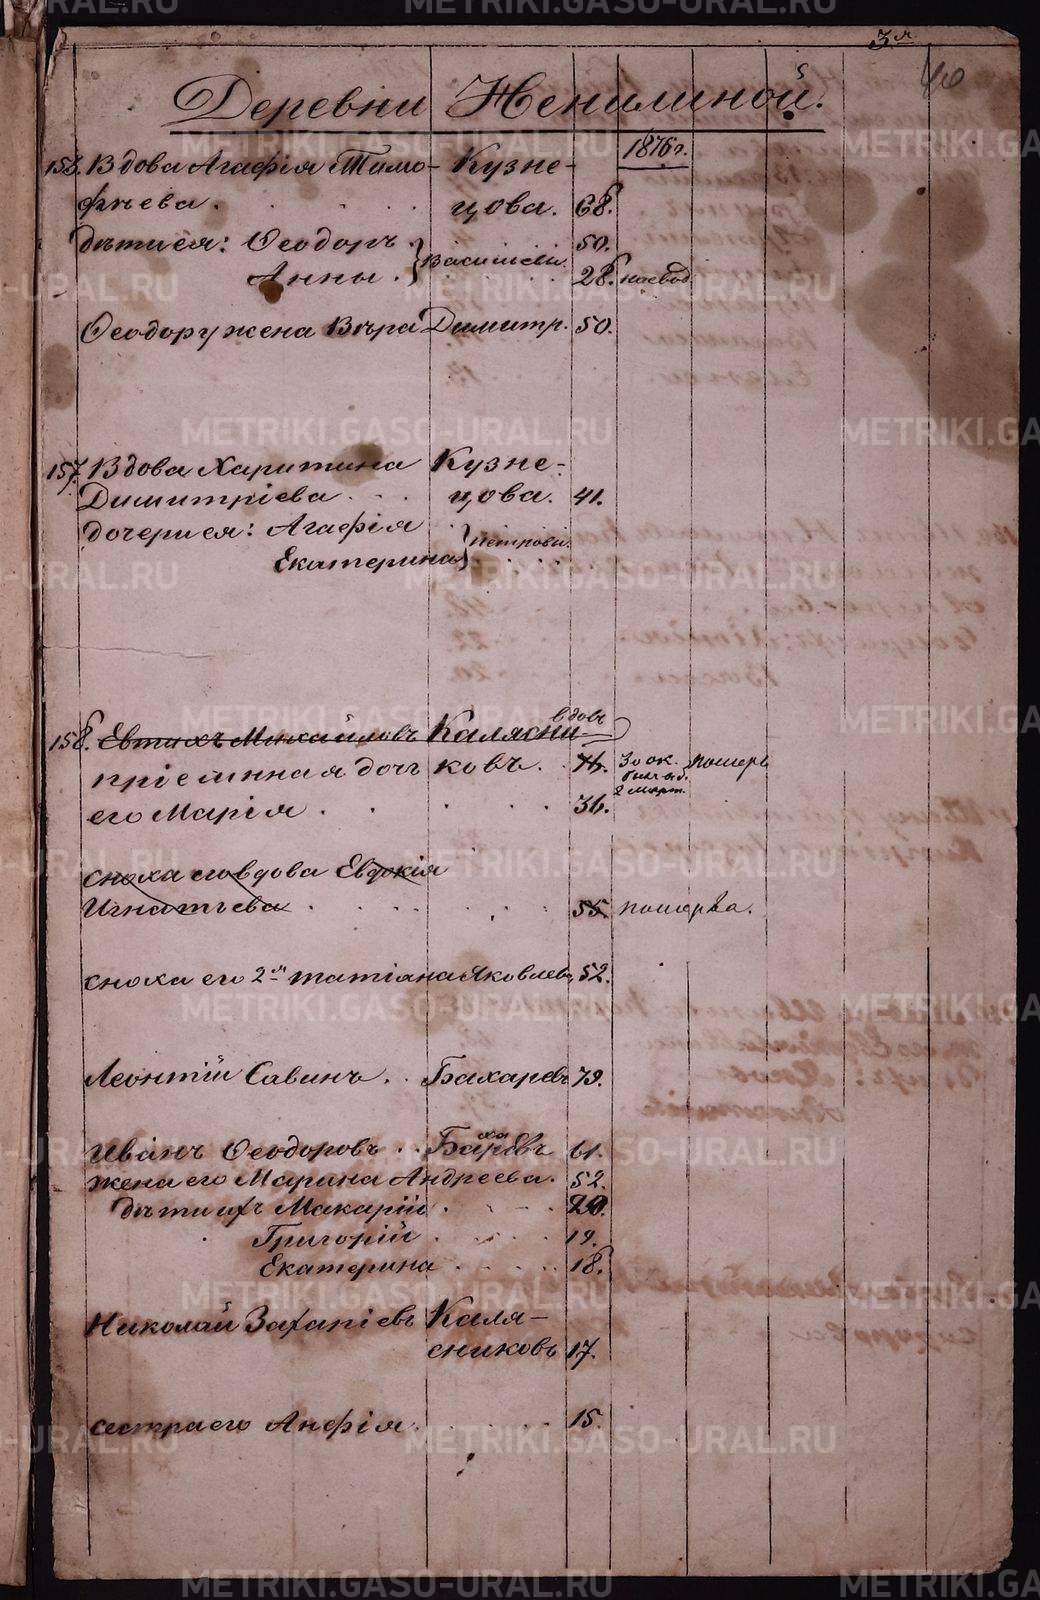 3я
40
Деревни Женилиной.
1876 г.
153. Вдова Агафія Тимо- Кузне-
фѣева. цова. 68.
дѣти ея: Ѳеодоръ 50.
Анны. } Васильевы. 28.
Ѳеодору жена Вѣра Димитр. 50.
157. Вдова Харитина Кузне-
Димитріева цова. 41.
дочери ея: Агафія
Екатерина } Петровы.
вдовъ
158. Евтихъ Михайловъ Калясни-
пріемная дочь ковъ. 30 ок. померъ
2 март.
его Марія 36.
сноха его вдова Евдокія
Игнатьева 55. померла.
сноха его 2я татіана Яковлев. 52.
Леонтій Савинъ Бахаревъ 79.
Иванъ Ѳеодоровъ Бахаревъ 61.
жена его Марина Андреева. 52.
дѣти ихъ Макарій 20.
Григорій 19.
Екатерина 18.
Николай Захаріевъ Каля-
сниковъ 17.
сестра его Анфія 15.
METRIKI.GASO-URAL.RU